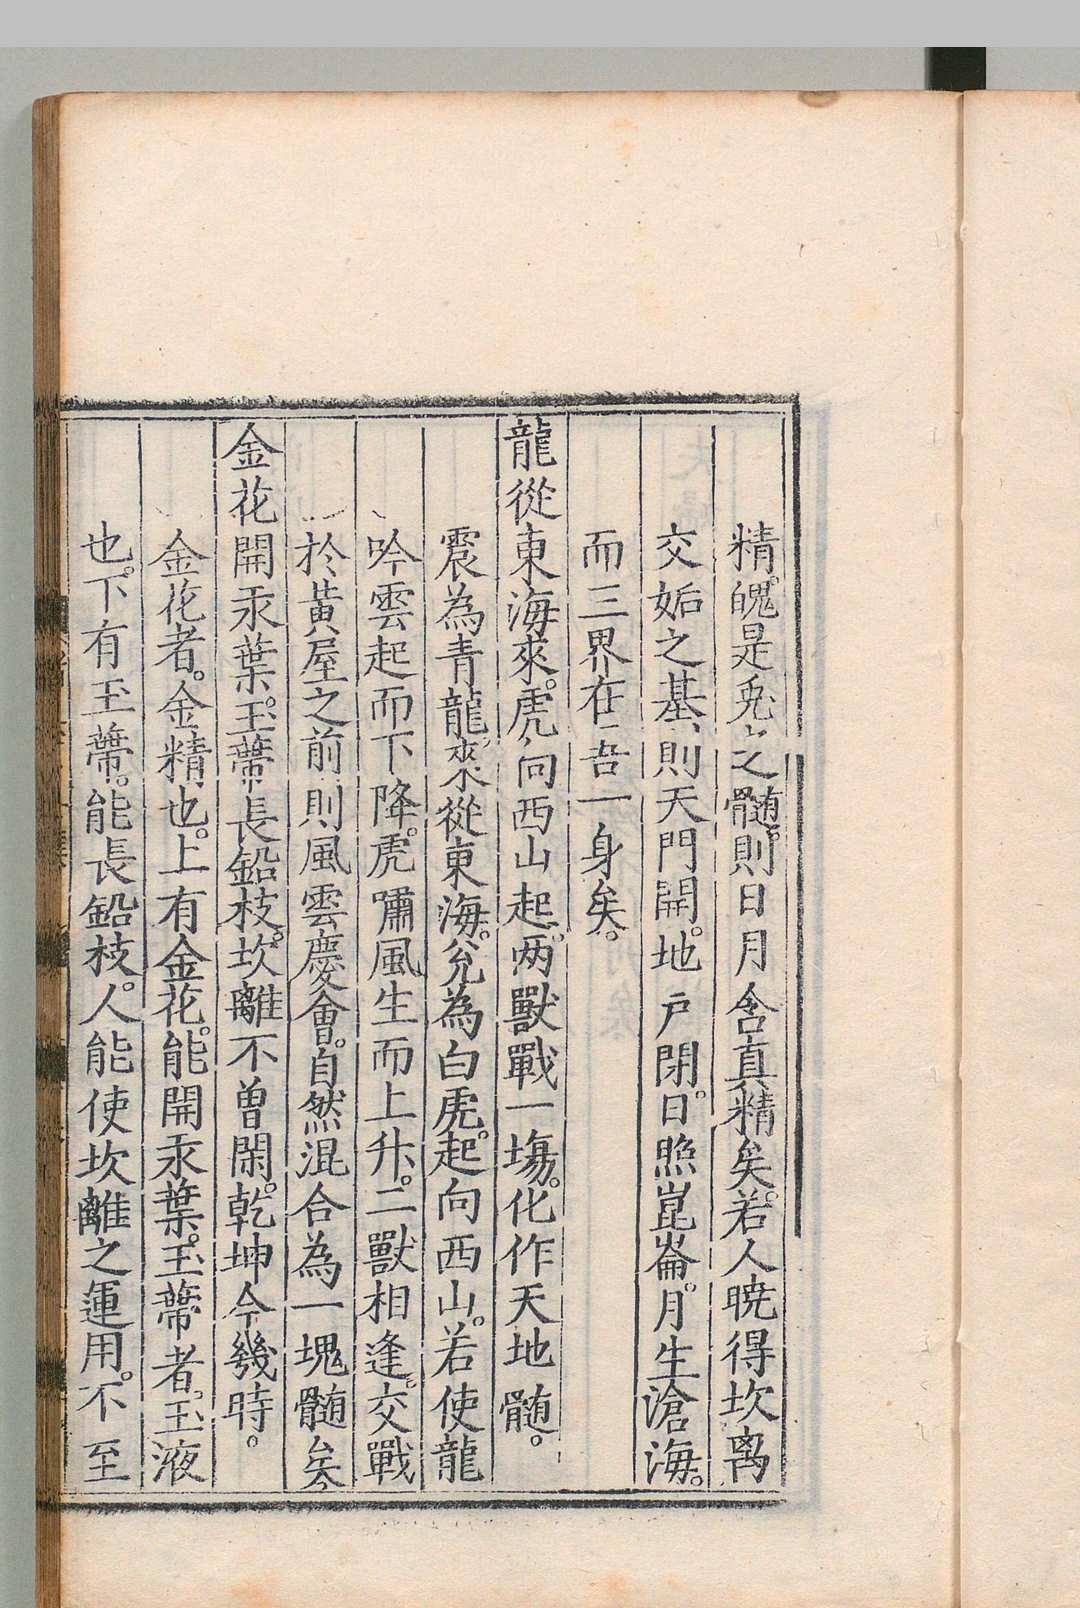 精。魄是兎之髓。則日月含真精矣。若人暁得坎离
交姤之基、則天門開。地戸閉。日照崑崙。月生滄海。
而三界在吾一身矣。
龍從東海來。虎向西山起。两獸戰一塲。化作天地髓。
震為青龍、來從東海。兊為白虎。起向西山。若使龍
吟雲起而下降。虎嘯風生而上升。二獸相逢。交戰
於黄屋之前則風雲慶會。自然混合為一塊髓矣
金花開汞葉。玉蔕長鉛枝。坎離不曾閑。乾坤今幾時。
金花者。金精也。上有金花。能開汞葉。玉蔕者。玉液
也。下有玉蔕。能長鉛枝。人能使坎離之運用。不至